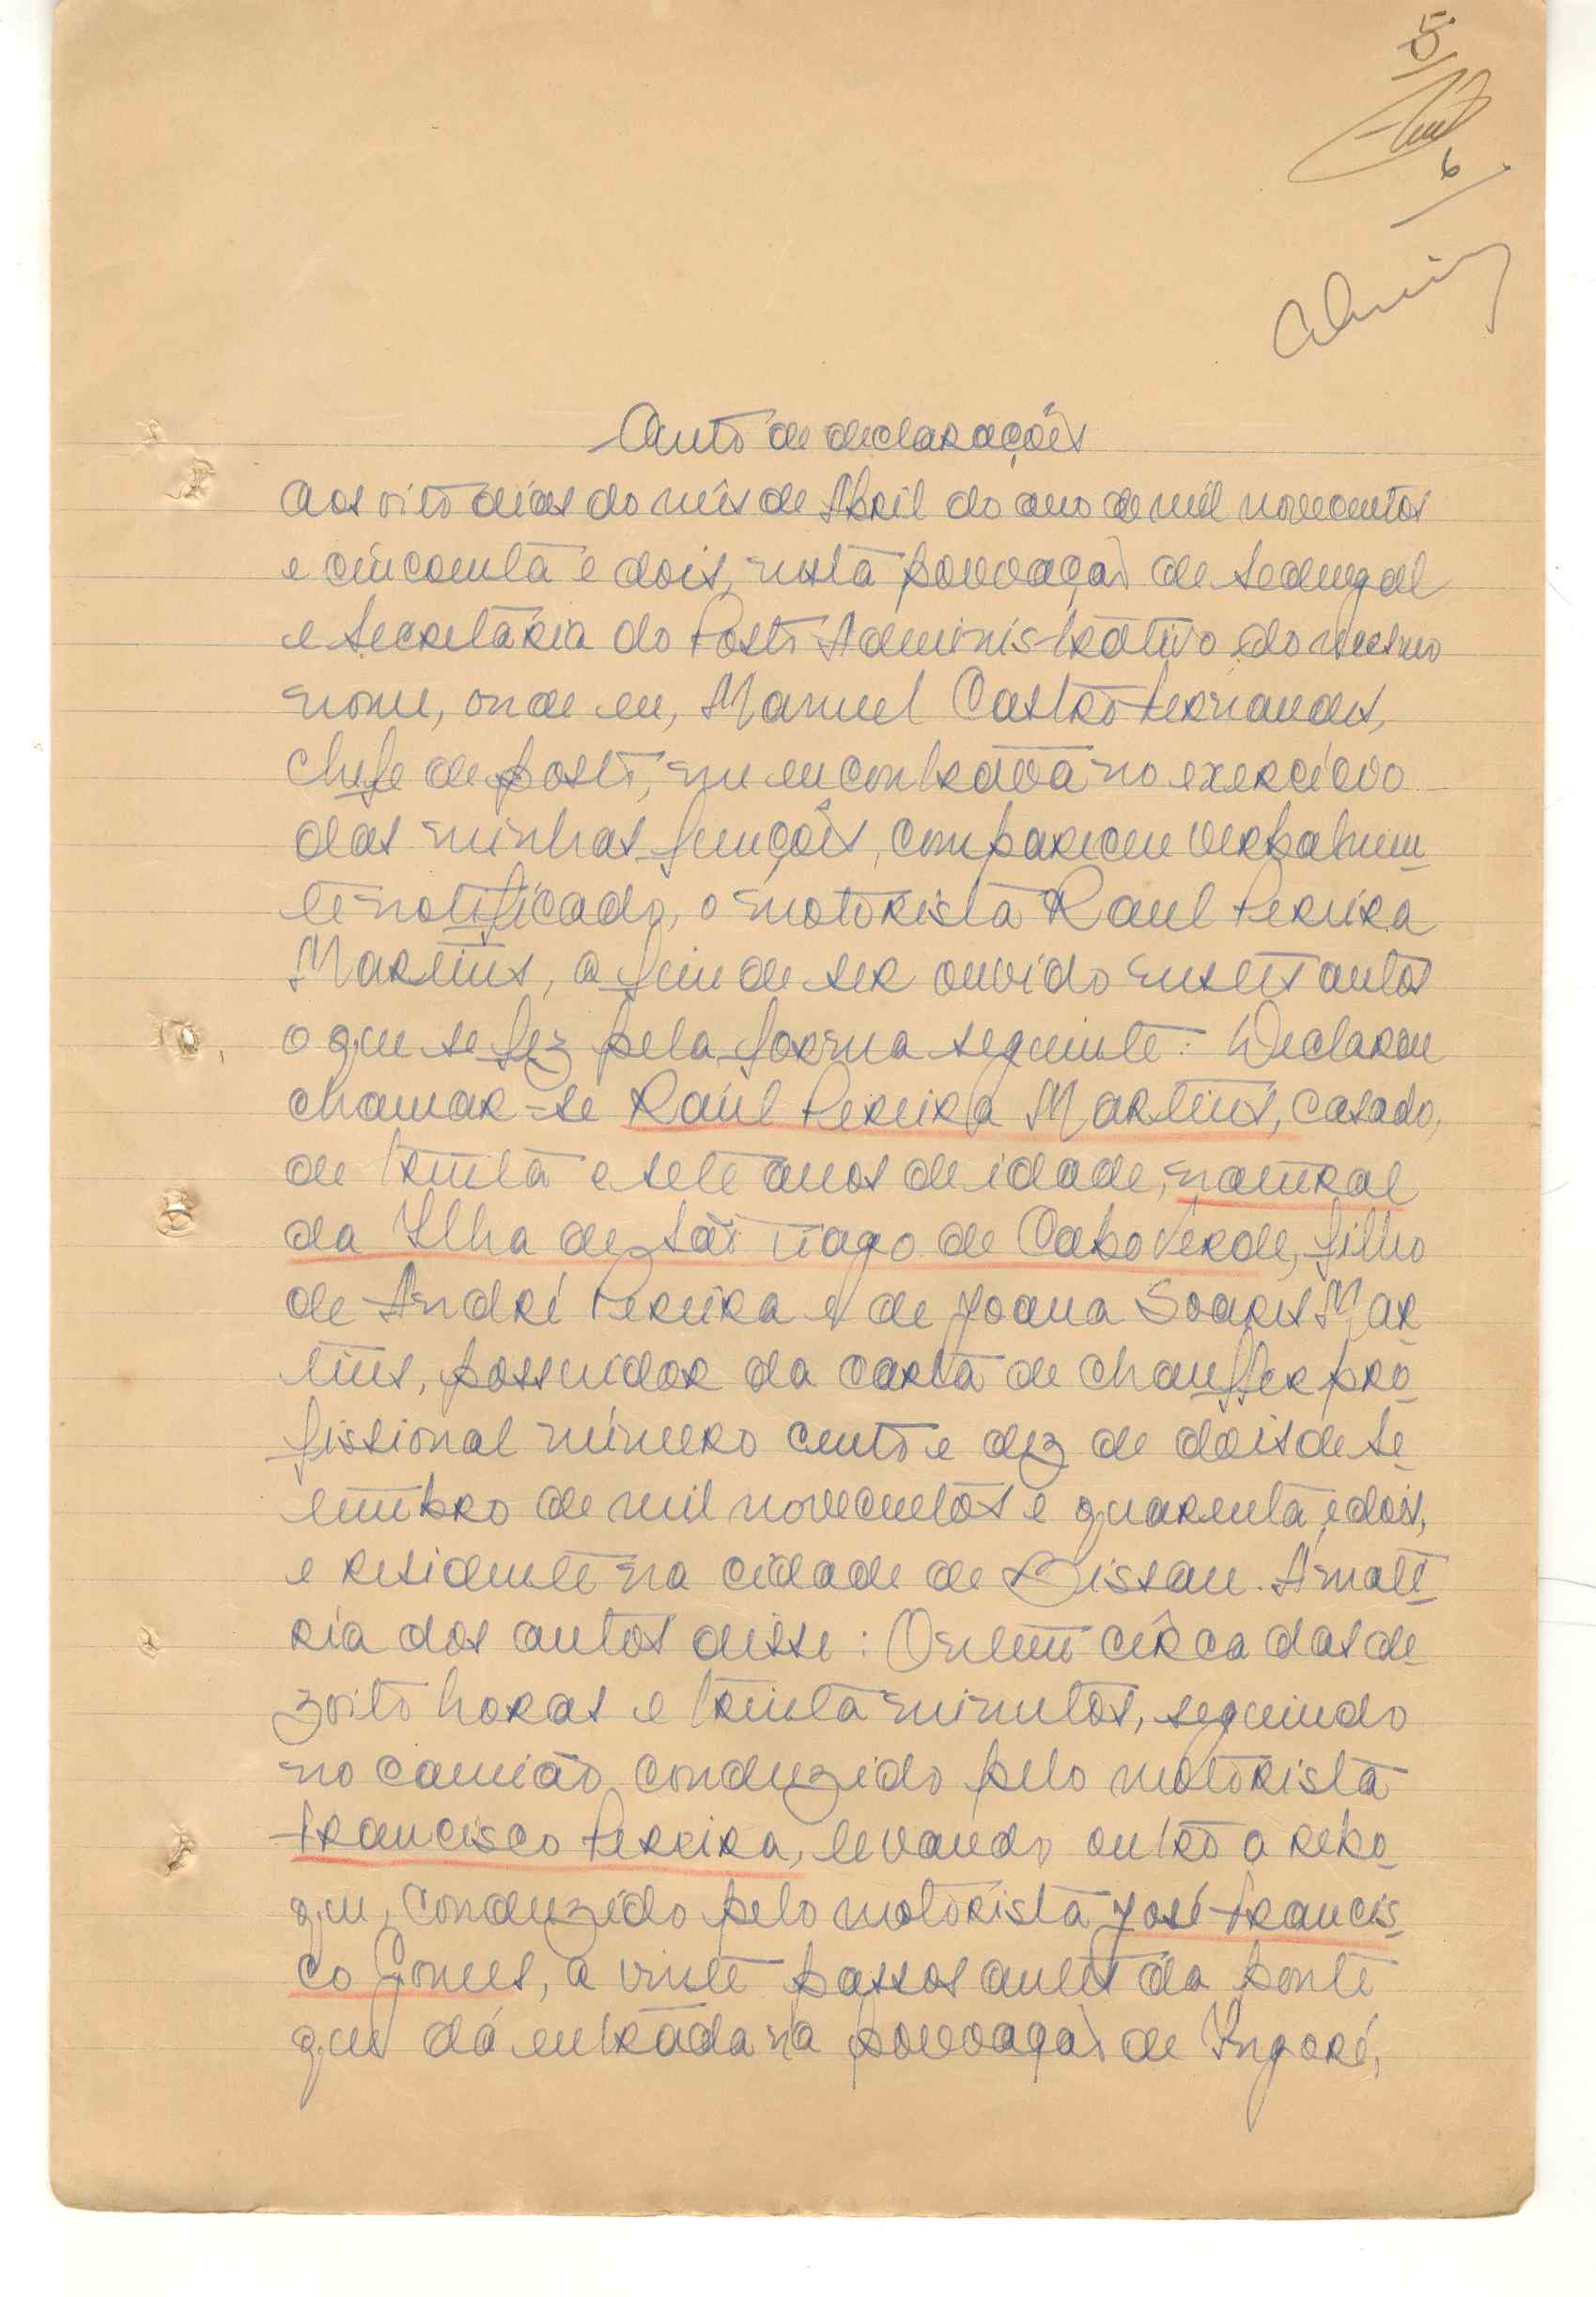 5
6
Auto de declarações
Aos oito dias do mês de Abril do ano de mil novecentos
e cincoenta e dois, nesta povoação de Sedengal
e Secretaria do Posto Administrativo do mesmo
nome, onde eu, Manuel Castro Fernandes,
chefe de posto, me encontrava no exercício
das minhas funções, compareceu verbalmen
te notificado, o motorista Raul Pereira
Martins, a fim de ser ouvido nestes autos
o que se fez pela forma seguinte: Declarou
chamar-se Raúl Pereira Martins, casado,
de trinta e sete anos de idade, natural
da Ilha de São Tiago de Cabo Verde, filho
de André Pereira e de Joana Soares Mar
tins, possuidor da carta de chauffer pro
fissional número cento e dez de dois de Se
tembro de mil novecentos e quarenta e dois,
e residente na cidade de Bissau. Á maté
ria dos autos disse: Ontem cêrca das de
zoito horas e trinta minutos, seguindo
no camião conduzido pelo motorista
Francisco Pereira, levando outro a rebo
que, conduzido pelo motorista José Francis
co Gomes, a vinte passos antes da ponte
que dá entrada na povoação de Ingoré,